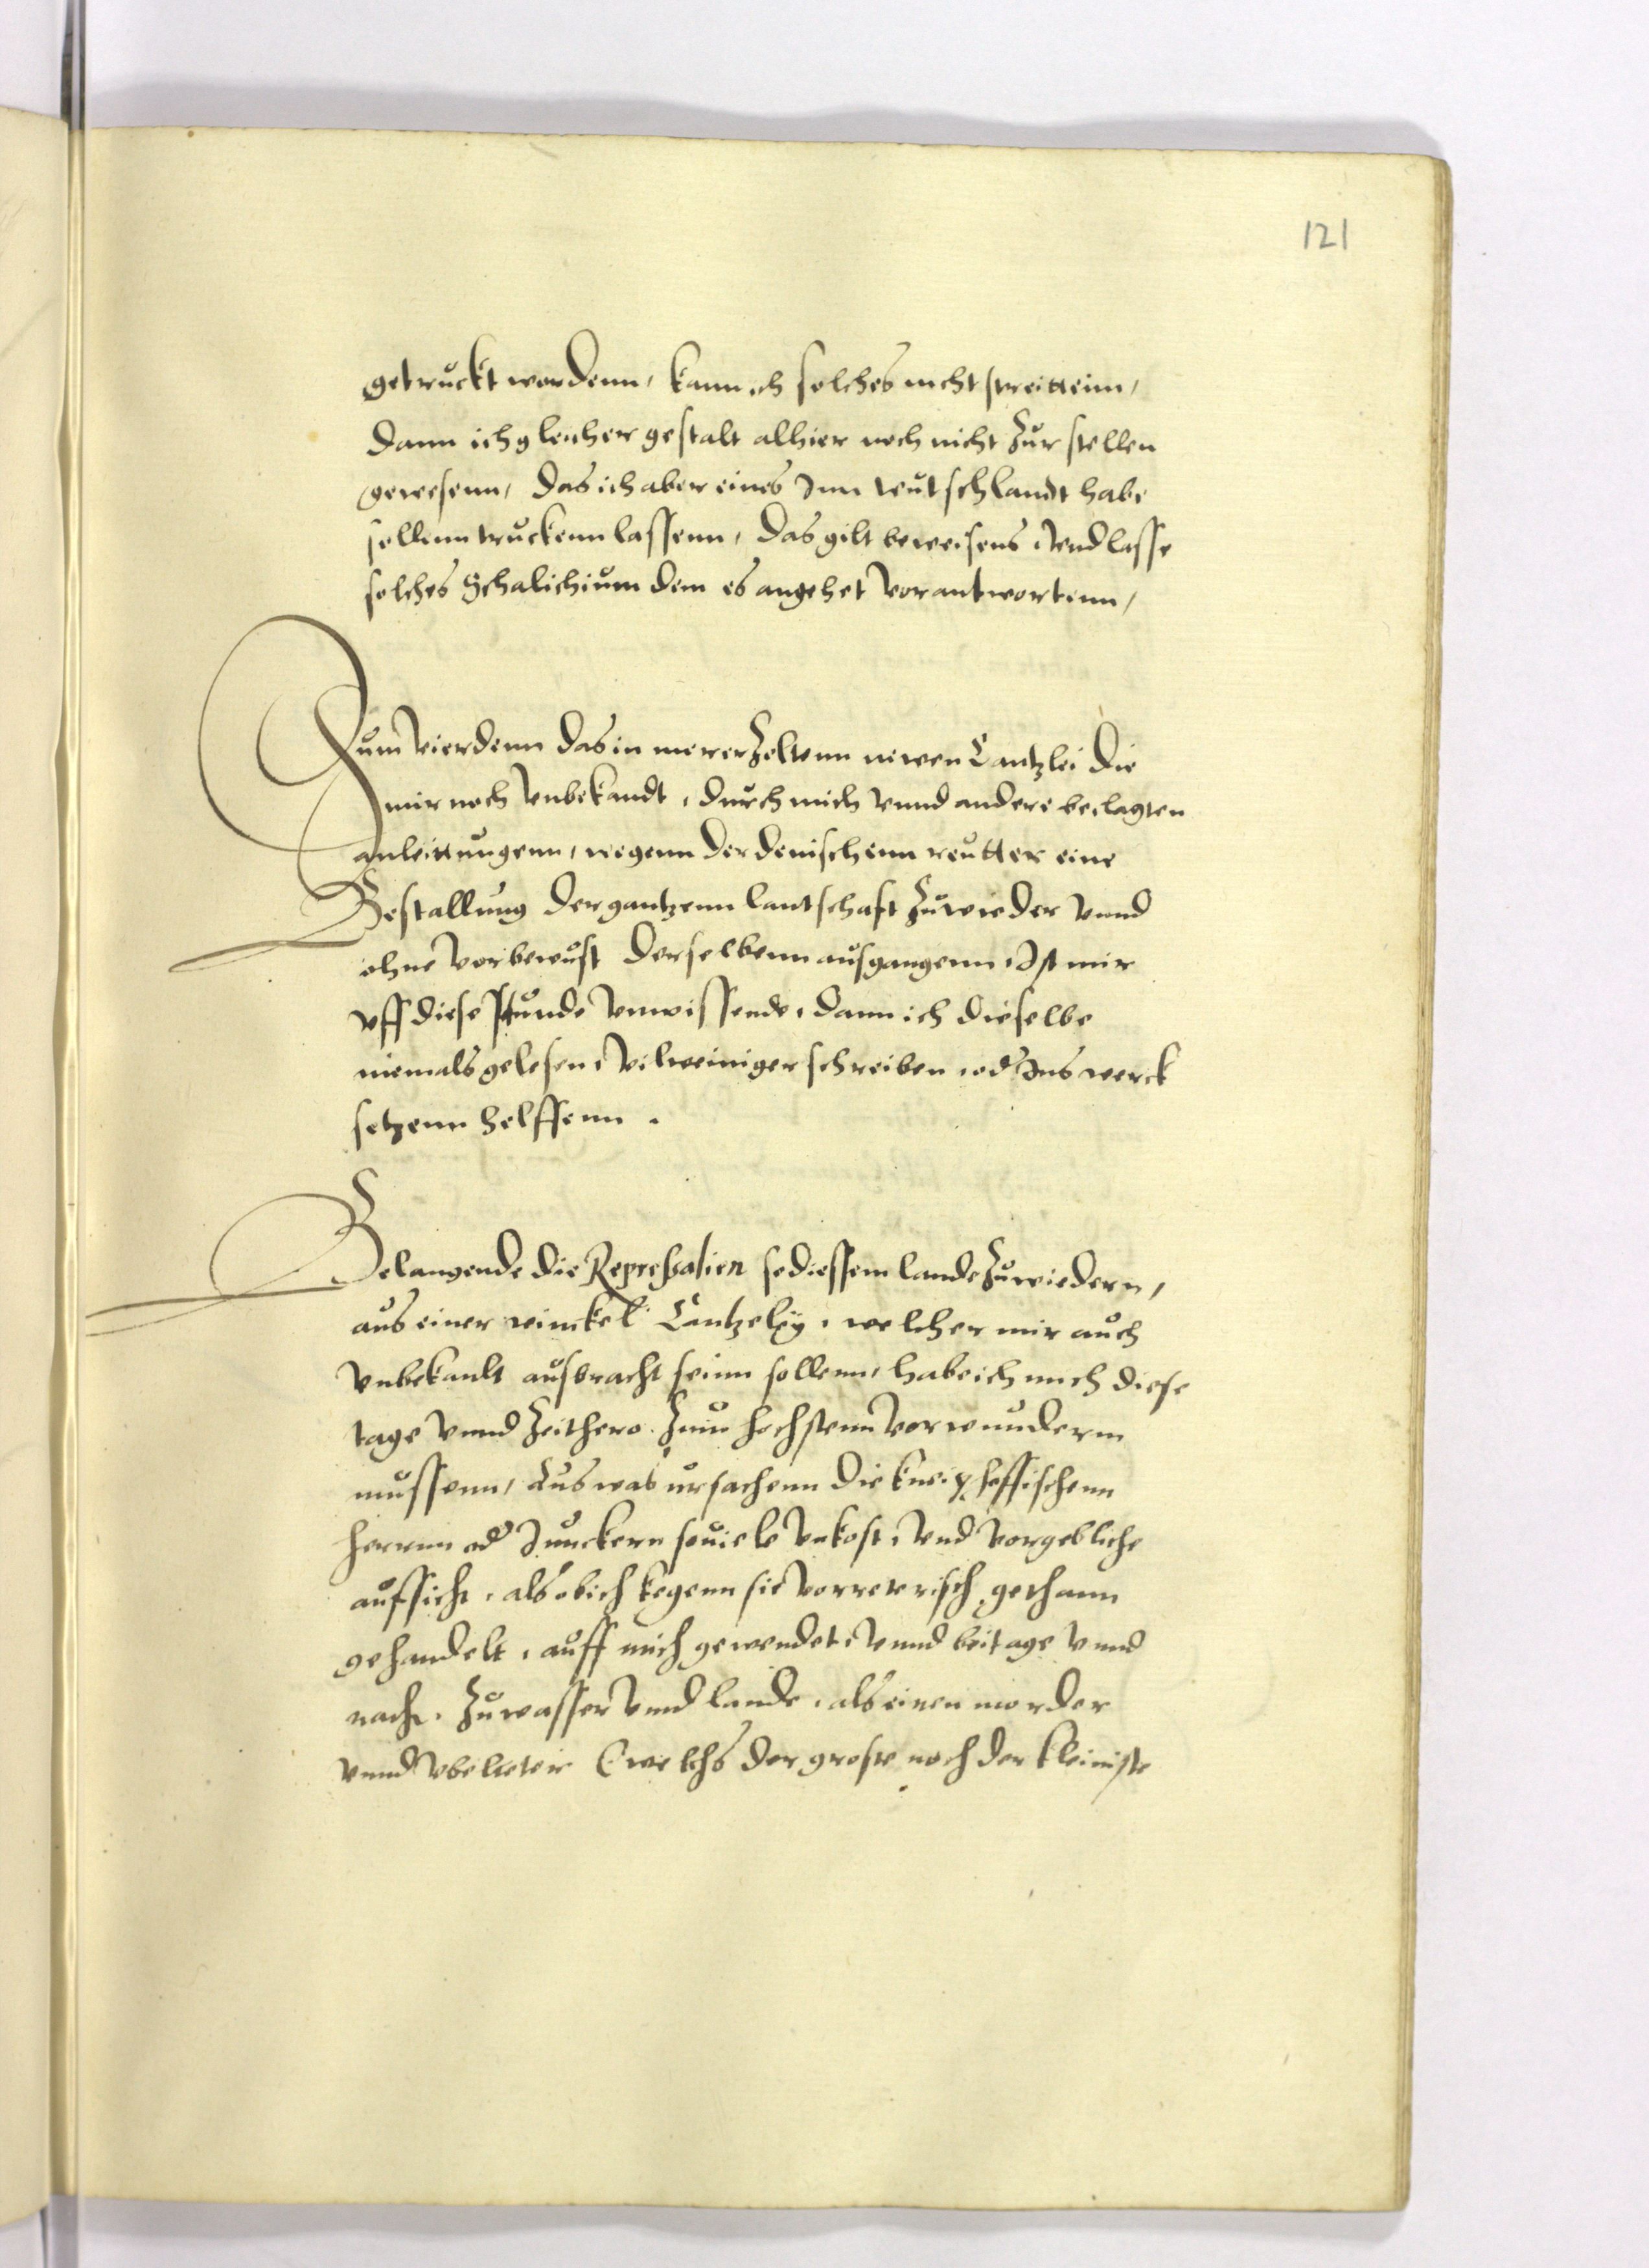 121
getruckt wordenn, kann ich solches nicht streittenn,
dann ich gleicher gestalt alhier noch nicht zur stellen
gewesenn, das ich aber eines Inn teutschlandt habe
sollenn truckenn lassenn, das gilt beweisens, vnd lasse
solches Schalichium dem es angehet vorantwortenn,
Zum vierdenn das in mererzeltenn newen Cantzlei die
mir noch vnbekandt, durch mich vnnd andere beclagten
anleittungenn, wegenn der denischenn reutter eine
Bestallung der gantzenn lantschaft zuwieder vnnd
ohne vorbewust derselbenn ausgangenn, Ist mir
vff diese stunde vnwissende, dann ich dieselbe
niemals gelesen, vilweiniger schreiben, od Ins werck
setzenn helffenn.
Belangende die Repressalien so diessem lande zuwiedern,
aus einer winckel Cantzeley, welcher mir auch
vnbekanlt ausbracht seinn sollenn, habe ich mich diese
tage vnnd zeithero zum hochstenn vorwundernn
mussenn, Aus was ursachenn die kneiphoffischenn
herrnn od Junckern souiele vnkost, vnd vorgebliche
aufsicht, als ob ich kegenn sie vorreterisch gethann
gehandelt, auff mich gewendet, vnnd bei tage vnnd
nacht, zu wasser vnnd lande, als einen morder
vnnd vbelteter (welchs der groste noch der kleiniste